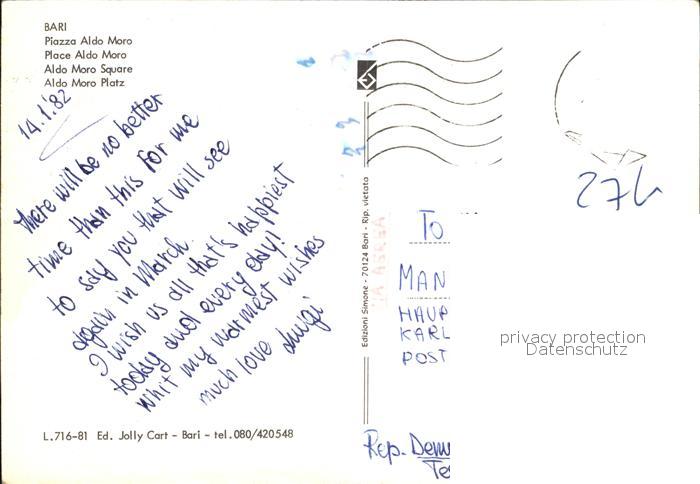 BARI
Piazza Aldo Moro
Place Aldo Moro
Aldo Moro Square
Aldo Moro Platz
14.1.'82
there will be no better
time than this for me
to say you that will see
again in March.
I wish us all that's happiest
today and every day!
whit my warmest wishes
much love Luigi
L.716-81 Ed. Jolly Cart - Bari - tel.080/420548
Edizioni Simone - 70124 Bari - Rip. vietata
27h
To
MAN
HAUP
KARL
POST
Rep. Dem
Te
privacy protection
Datenschutz